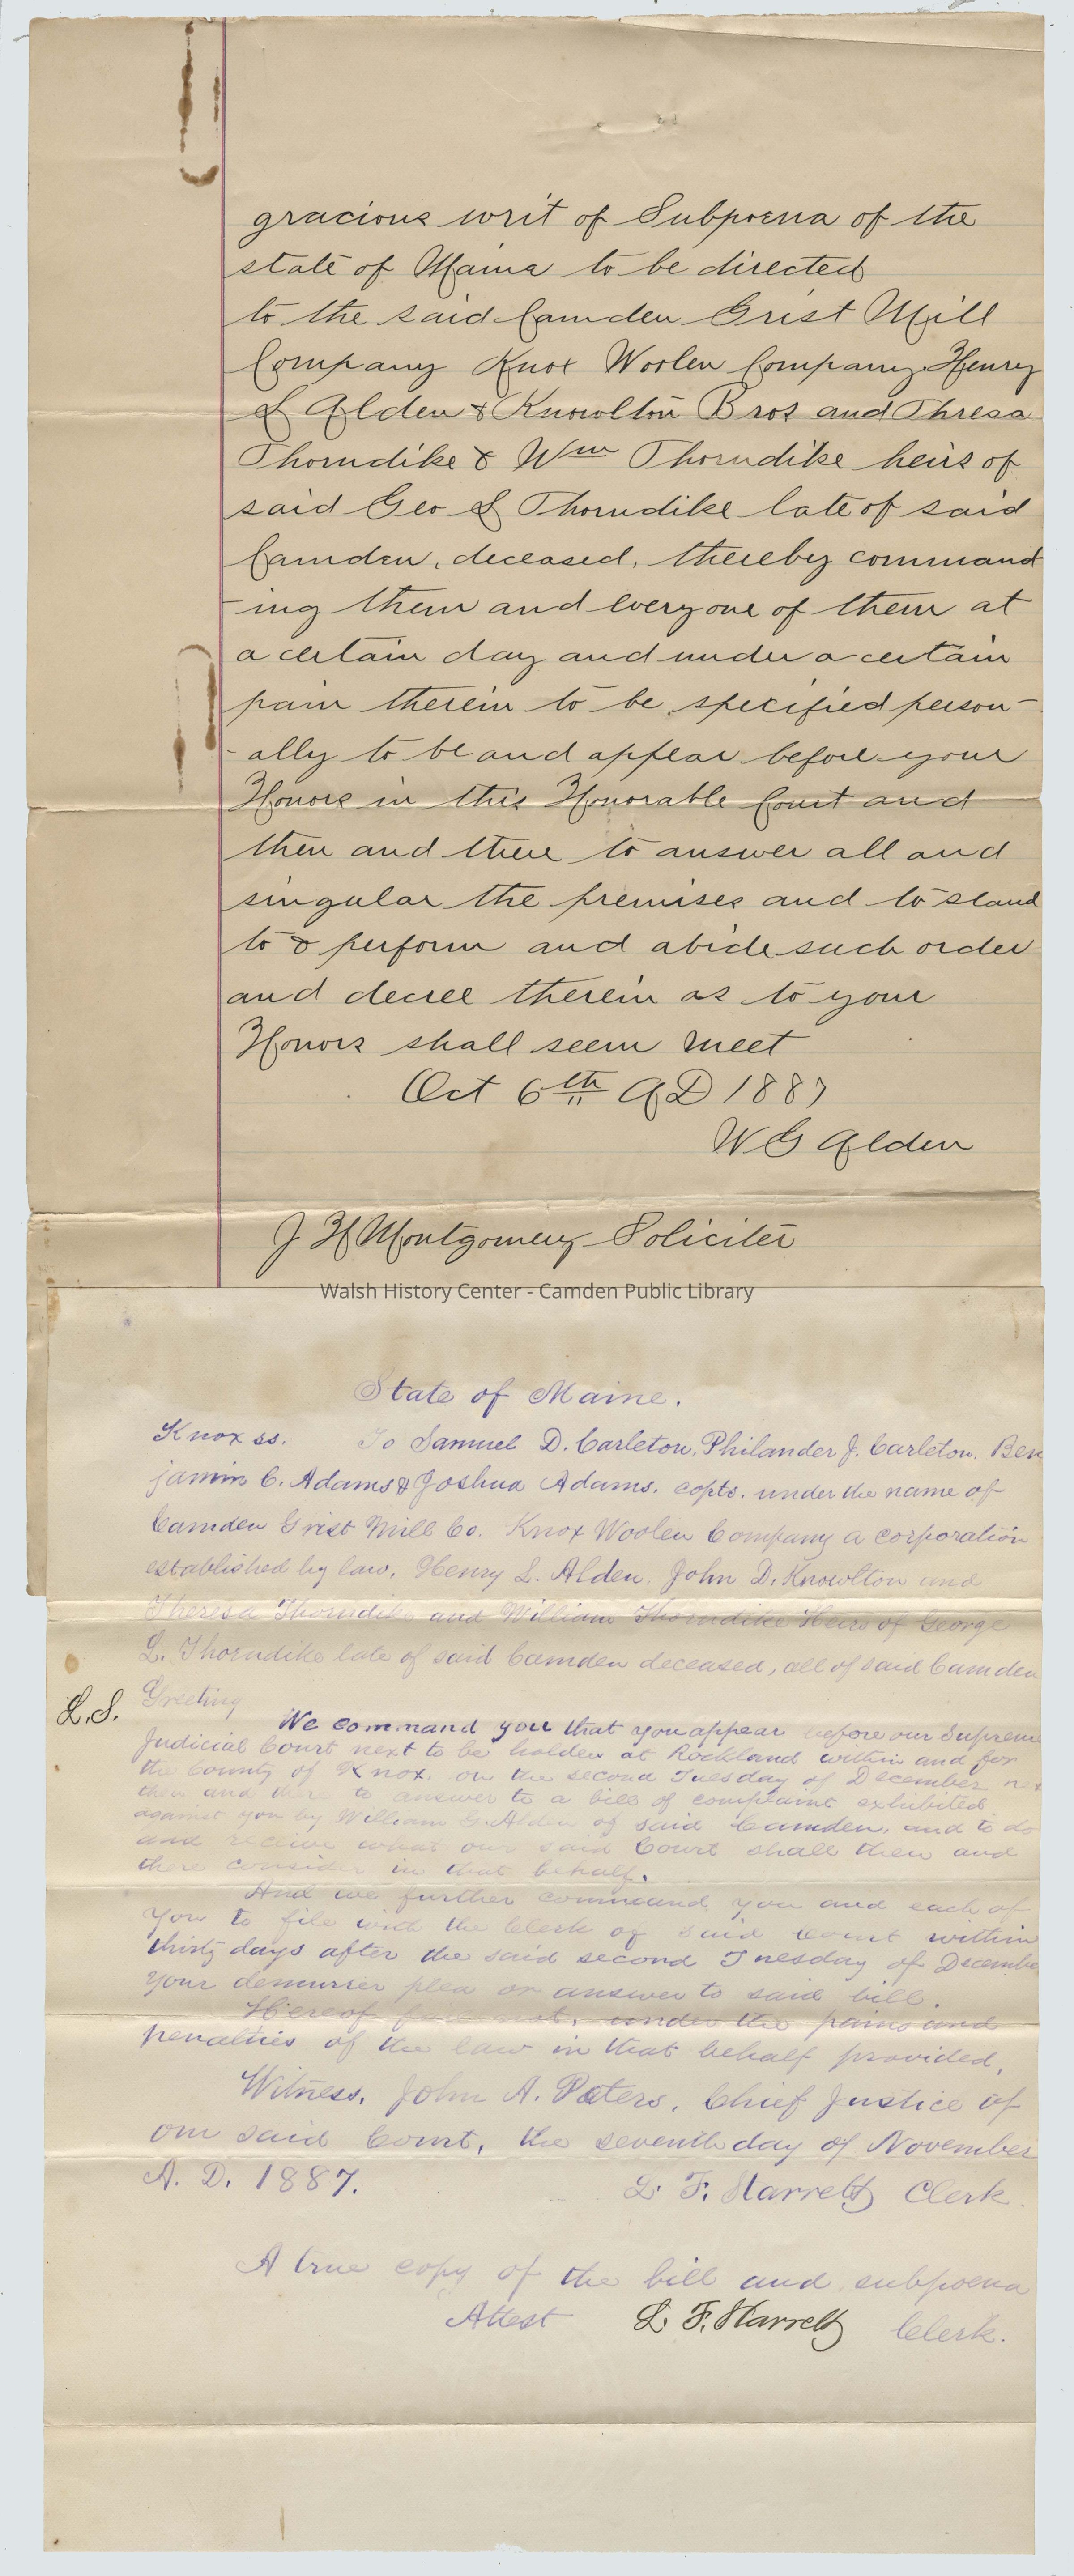 gracious writ of Subpoena of the
state of Maine to be directed
to the said Camden Grist Mill
Company Knox Woolen Company, Henry
L Alden & Knowlton Bros and Thresa
Thorndike & Wm Thorndike heirs of
said Geo L Thorndike late of said
Camden, deceased, thereby command
-ing them and every one of them at
a certain day and under a certain
pain therein to be specified person-
-ally to be and appear before your
Honors in this Honorable Court and
then and there to answer all and
singular the premises and to stand
to & perform and abide such order
and decree therein as to your
Honors shall seem meet
Oct 6th AD 1887
W G Alden
J H Montgomery Soliciter
Walsh History Center - Camden Public Library
State of Maine.
Knox ss. To Samuel D. Carleton, Philander J. Carleton, Ben
jamin C. Adams & Joshua Adams, copts. under the name of
Camden Grist Mill Co. Knox Woolen Company a corporation
established by law, Henry L. Alden, John D. Knowlton and
Theresa Thorndike and William Thorndike Heirs of George
L. Thorndike late of said Camden deceased, all of said Camden
L.S. Greeting
We command you that you appear before our Supreme
Judicial Court next to be holden at Rockland within and for
the County of Knox, on the second Tuesday of December nex
then and there to answer to a bill of complaint exhibited
against you by William G. Alden of said Camden, and to do
and receive what our said Court shall then and
there consider in that behalf.
And we further command you and each of
you to file with the Clerk of said Court within
thirty days after the said second Tuesday of Decembe
your demurrer plea or answer to said bill.
Hereof fail not, under the pains and
penalties of the law in that behalf provided,
Witness, John A. Peters, Chief Justice of
our said Court, the seventh day of November
A. D. 1887. L. F. Starrett Clerk.
A true copy of the bill and subpoena
Attest L. F. Starrett Clerk.